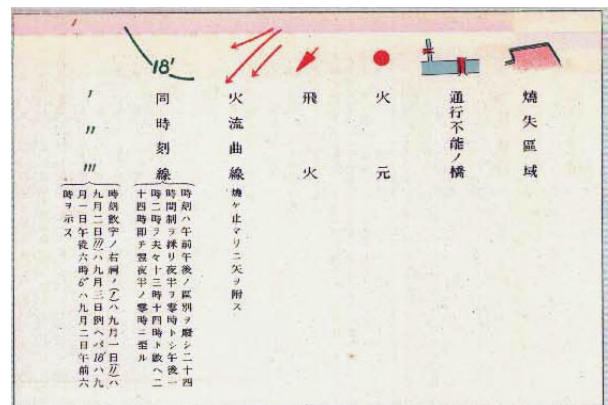 燒失區域
通行不能ノ橋
火元
飛火
火流曲線
燒ケ止マリニ矢ヲ附ス
18′
同時刻線
時刻ハ午前午後ノ區別ヲ廢シ二十四
時間制ヲ採リ夜半ヲ零時トシ午後一
時二時ヲ夫々十三時十四時ト數ヘ二
十四時卽チ翌夜半ノ零時ニ至ル
′
″
‴
時刻數字ノ右肩ノ(′)ハ九月一日(″)ハ
九月二日(‴)ハ九月三日例ヘバ18′ハ九
月一日午後六時6″ハ九月二日午前六
時ヲ示ス